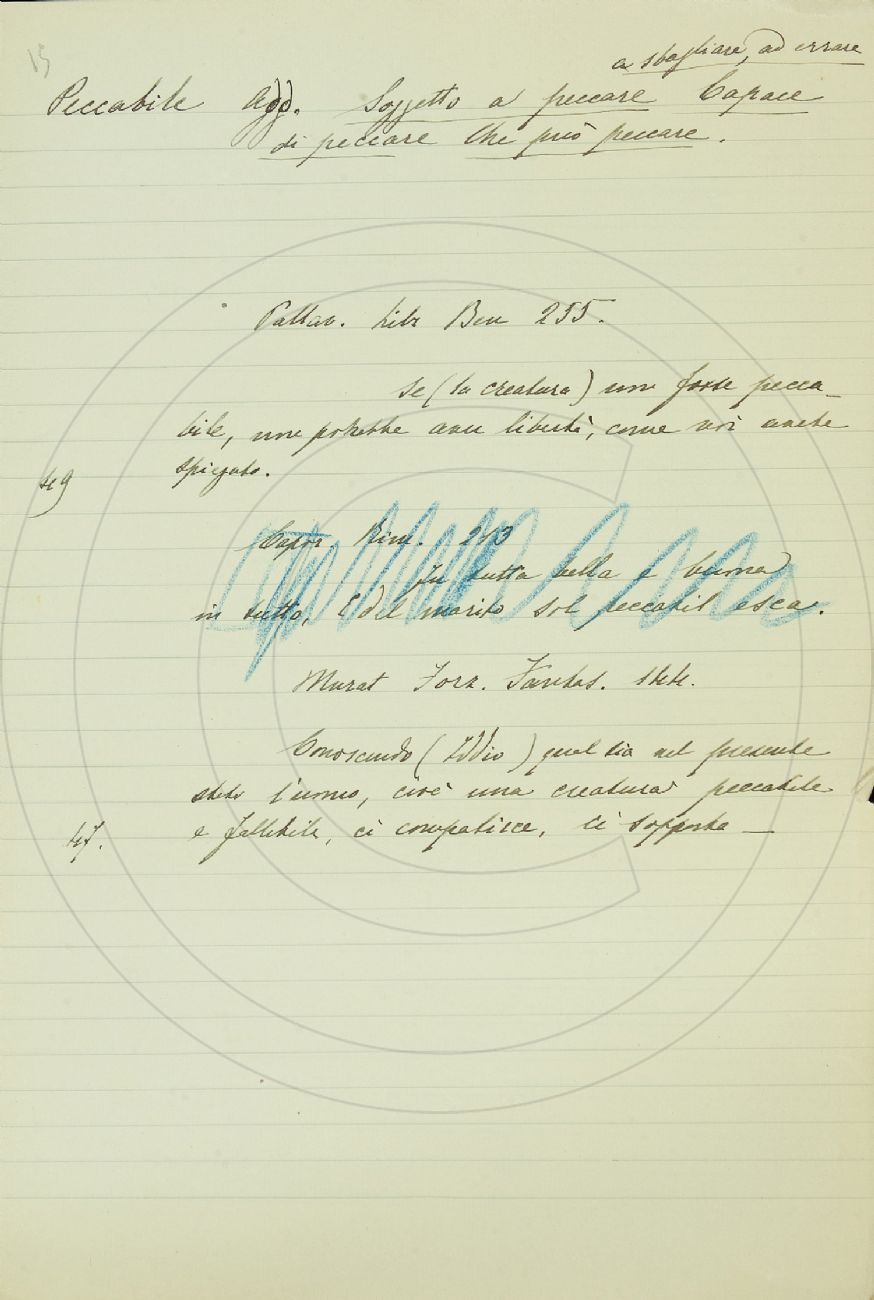 15
a sbagliare, ad errare
Peccabile Add. Soggetto a peccare Capace
di peccare Che può peccare.
Pallav. Libr Ben 255.
Se (la creatura) non fosse pecca-
bile, non potrebbe aver libertà, come voi avete
spiegato.
Rim. 213
In tutta bella e buona
in tutto, E del marito sol peccabil esca.
Murat Forz. Fantas.
Conoscendo (Iddio) qual sia nel presente
stato l'uomo, cioè una creatura peccabile
e fallibile, ci compatisce, ci sopporta —